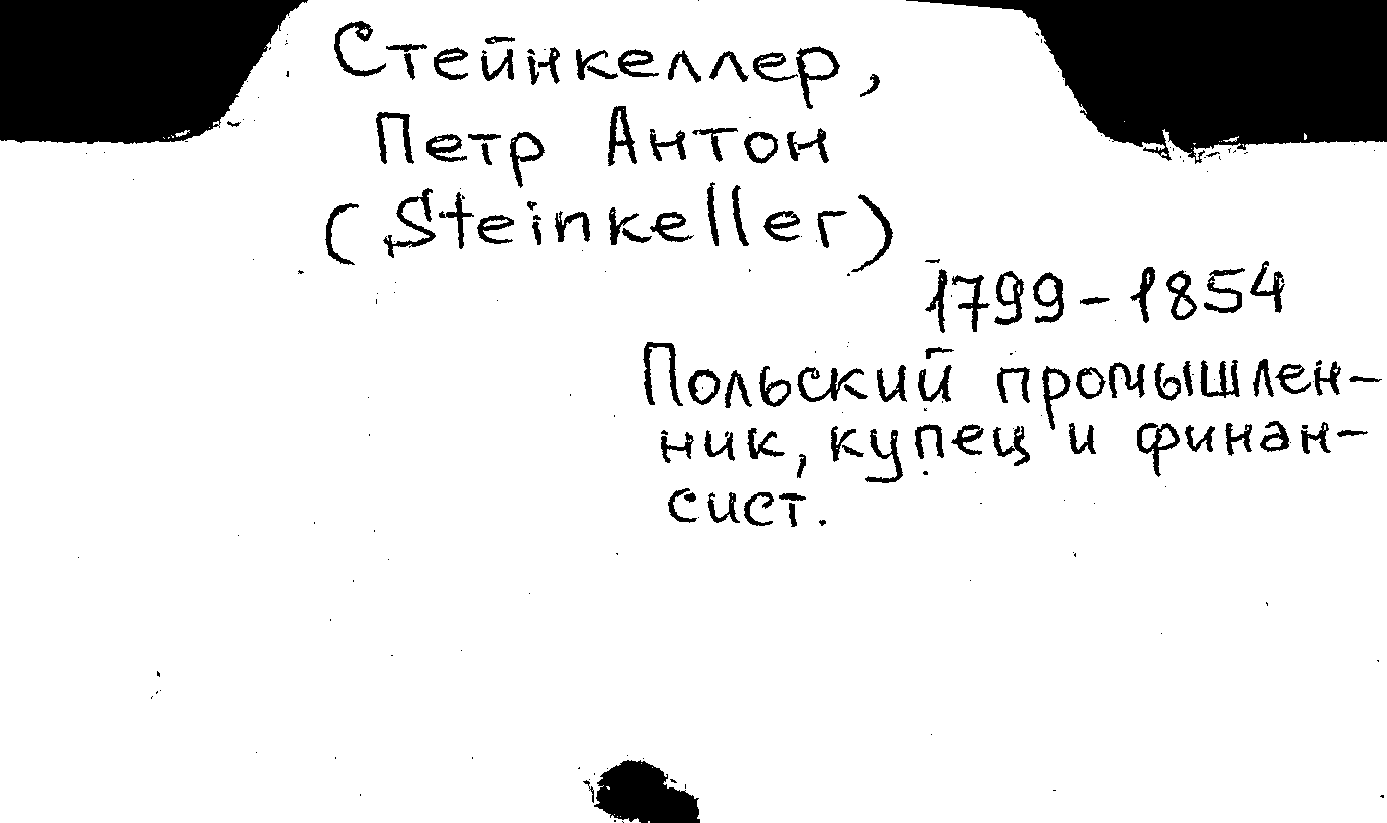 Стейнкеллер,
Петр Антон
(Steinkeller)
1799-1854
Польский промышлен-
ник, купец и финан-
сист.